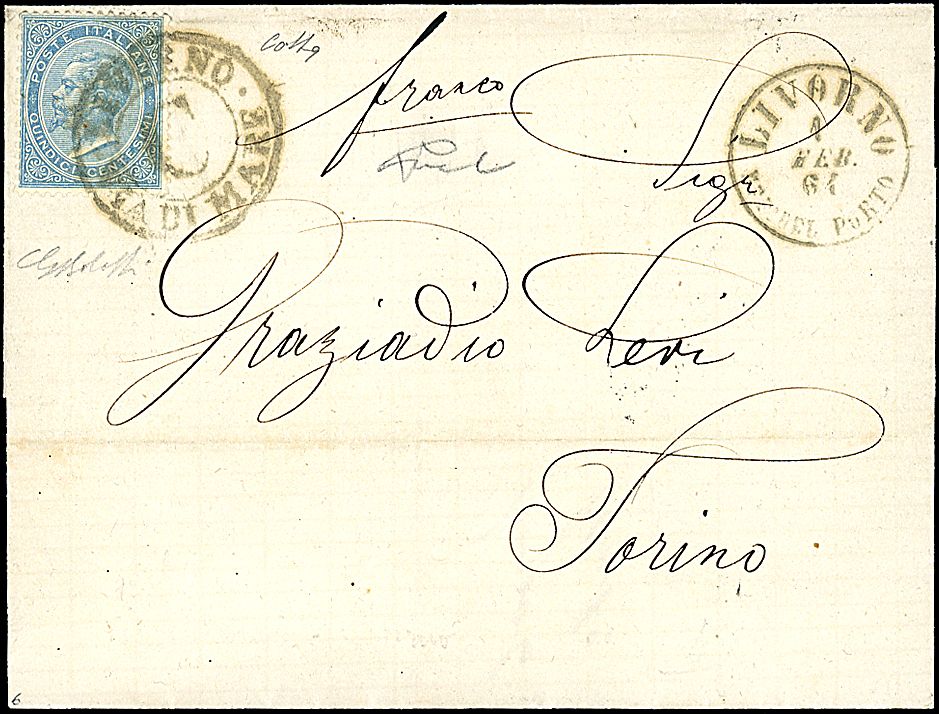 POSTE ITALIANE
QUINDICI CENTESIMI
DI MARE
Colla
franco
LIVORNO
FEB.
64
DEL PORTO
Sigr
Graziadio Levi
Torino
6